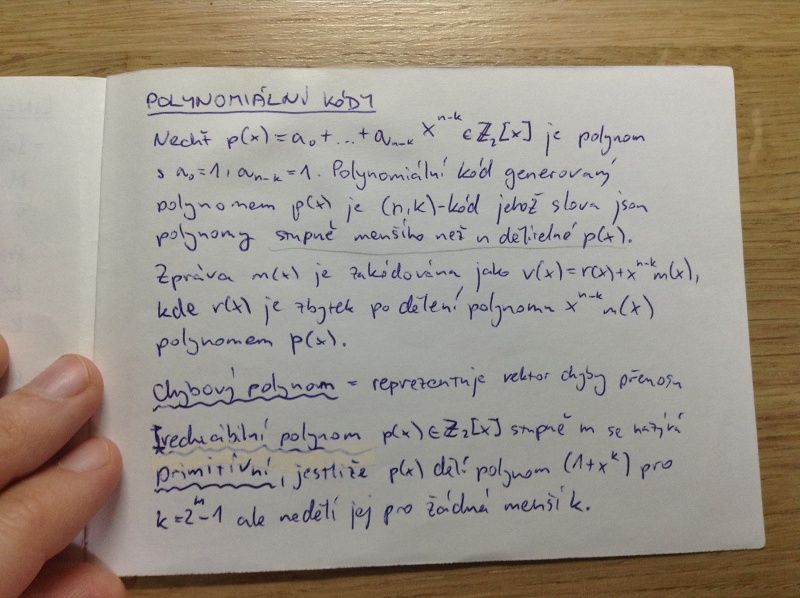 POLYNOMIÁLNÍ KÓDY
Nechť p(x) = a₀ + ... + aₙ₋ₖ xⁿ⁻ᵏ ∈ ℤ₂[x] je polynom
s a₀=1, aₙ₋ₖ=1. Polynomiální kód generovaný
polynomem p(x) je (n,k)-kód jehož slova jsou
polynomy stupně menšího než n dělitelné p(x).
Zpráva m(x) je zakódována jako v(x)=r(x)+xⁿ⁻ᵏm(x),
kde r(x) je zbytek po dělení polynomu xⁿ⁻ᵏm(x)
polynomem p(x).
Chybový polynom = reprezentuje vektor chyby přenosu
Ireducibilní polynom p(x) ∈ ℤ₂[x] stupně m se nazývá
primitivní, jestliže p(x) dělí polynom (1+xᵏ) pro
k=2ᵐ-1 ale nedělí jej pro žádná menší k.